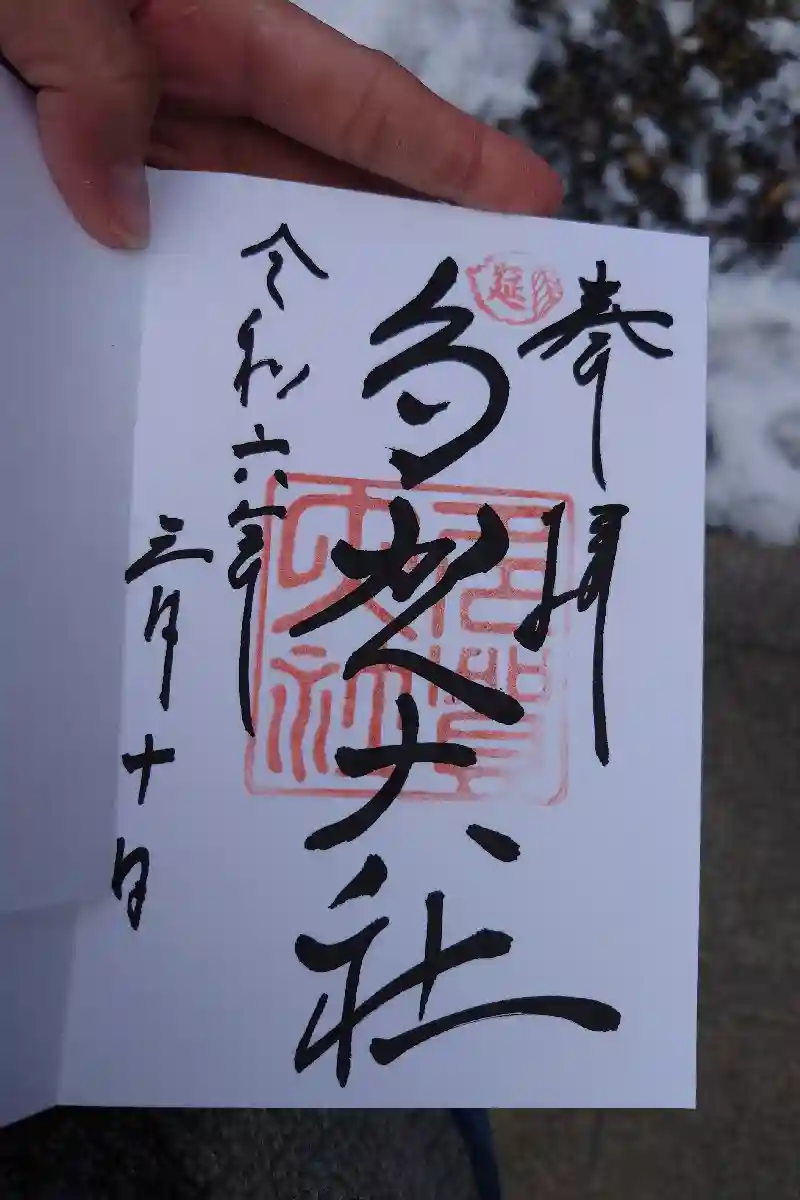 奉拝
延
多賀大社
多賀大社
令和六年
三月十日